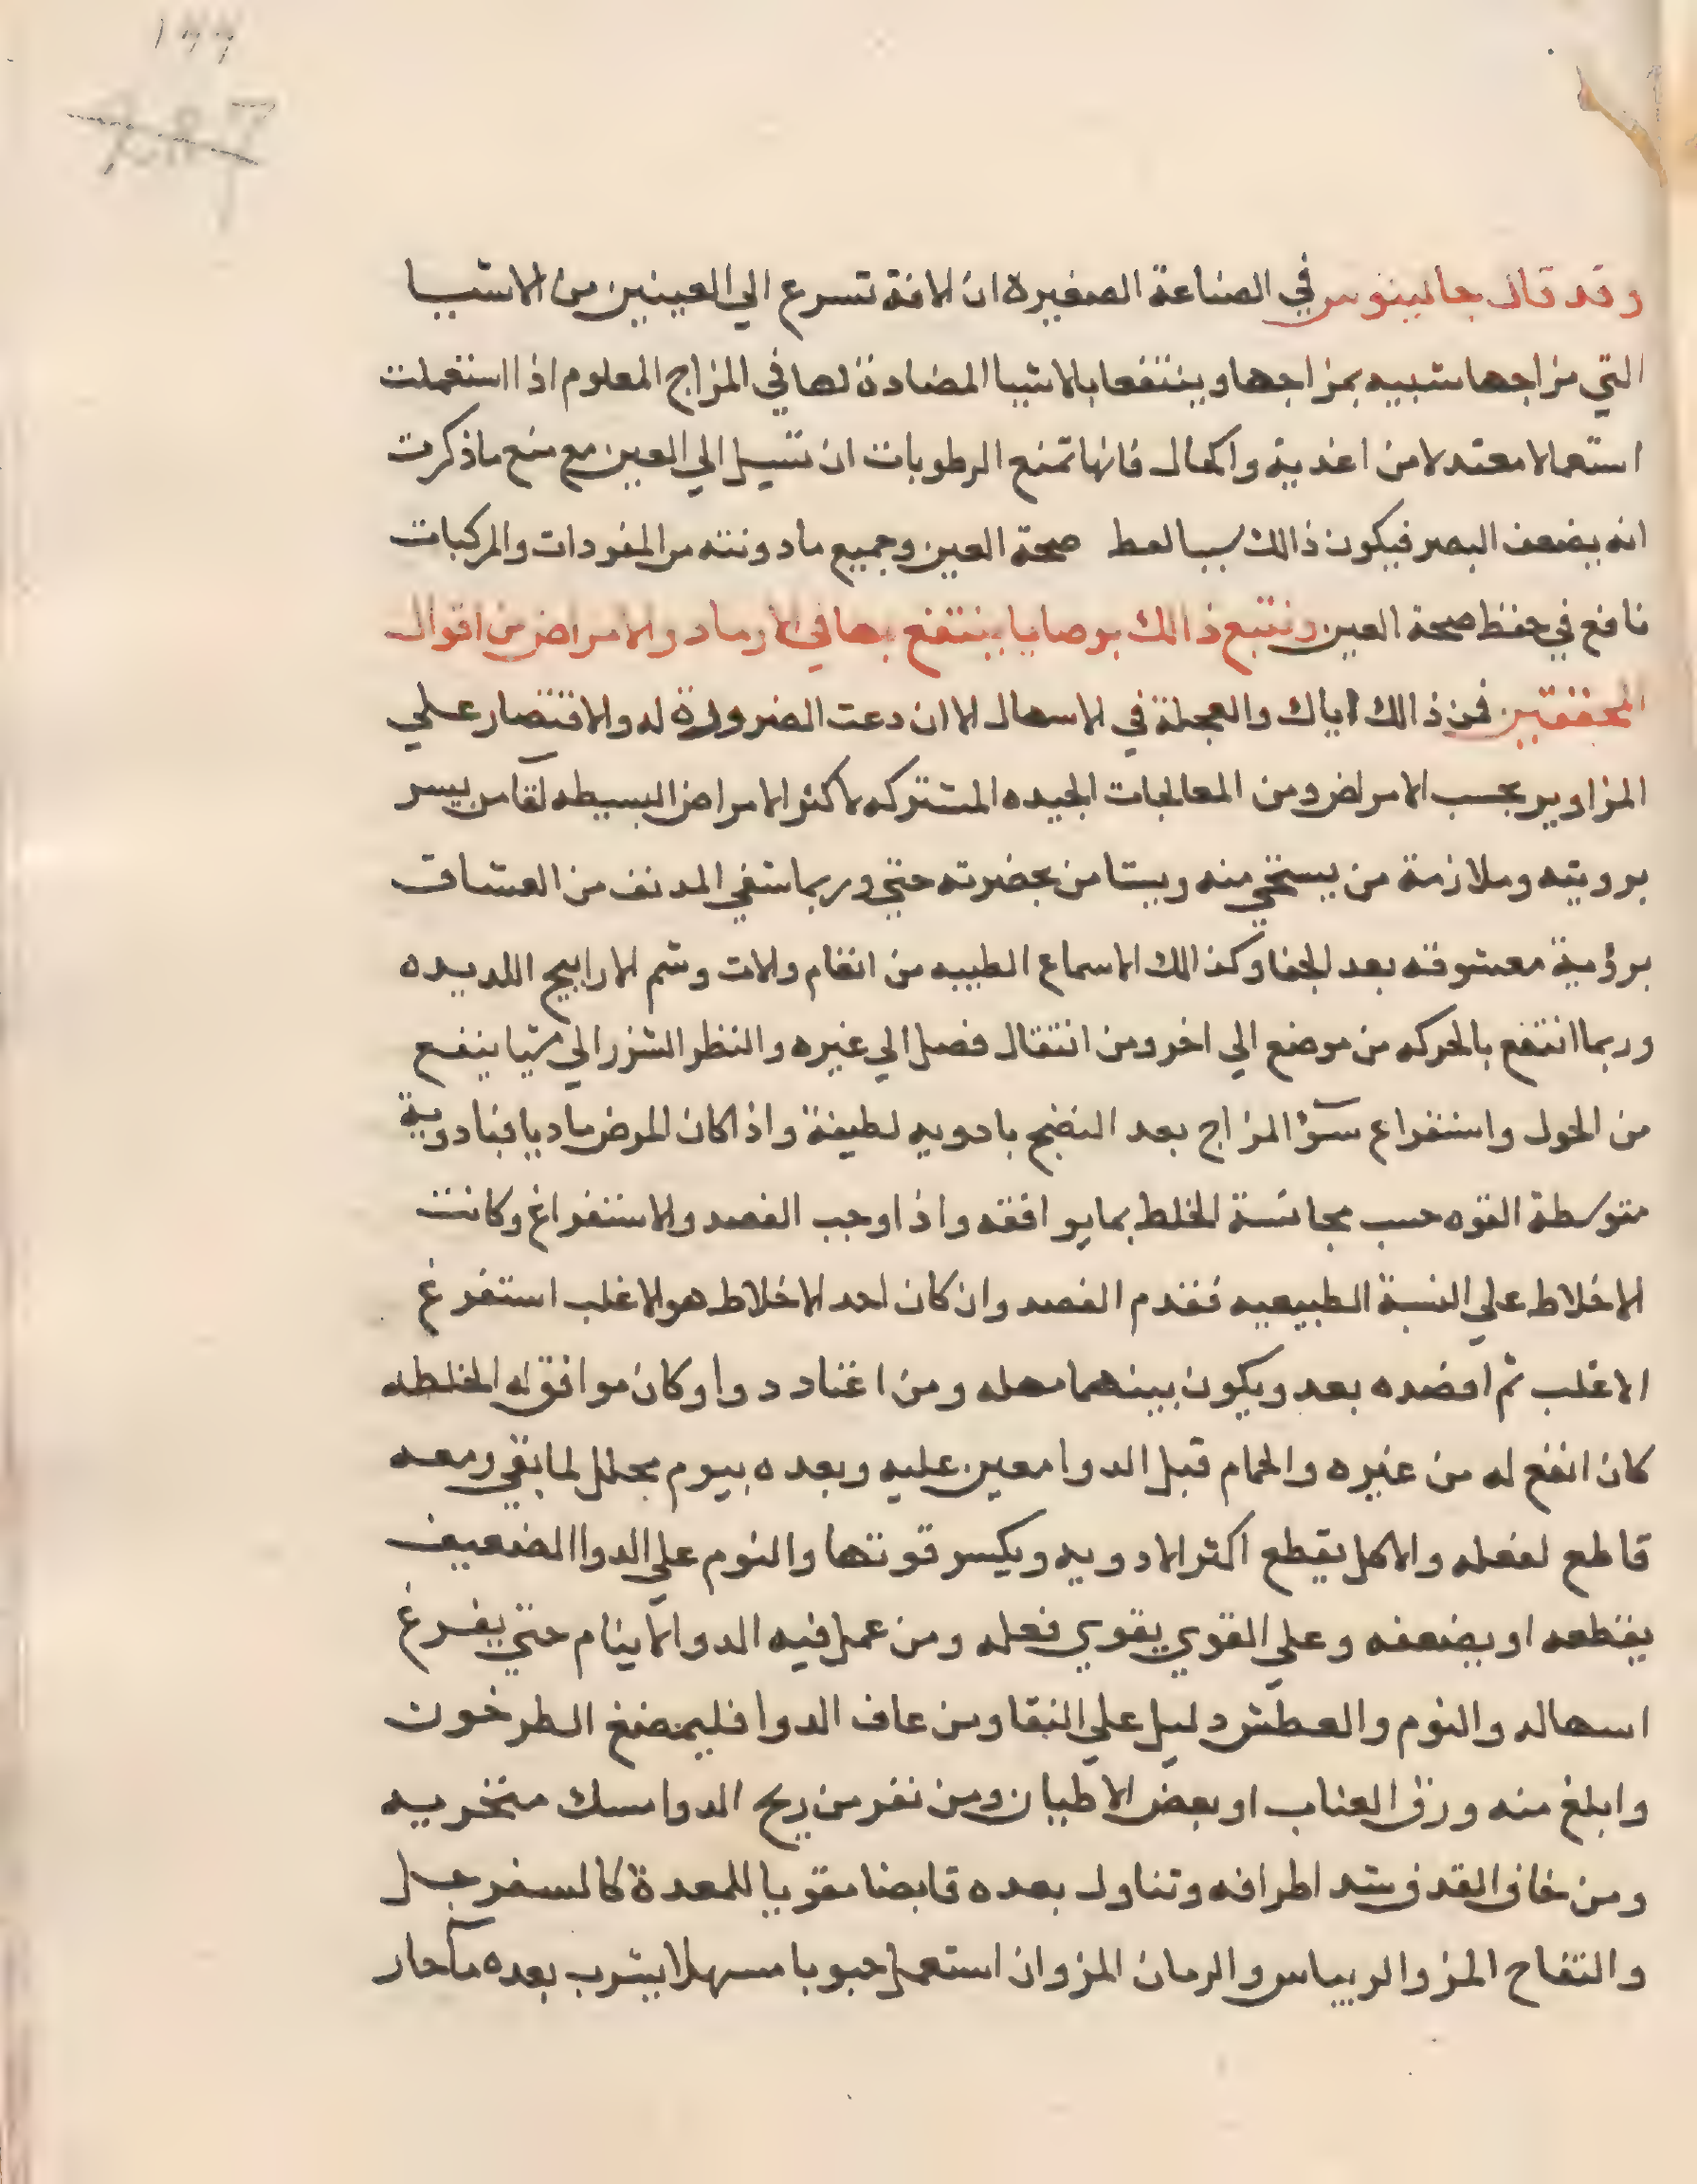 وقد قال جالينوس في الصناعة الصغيرة ان الافة تسرع الي العينين من الاشيا
التي مزاجها شبيه بمزاجها وينتفعا بالاشيا المضادة لها في المزاج المعلوم اذا استعملت
استعمالا معتدلا من اغذية واكحال فانها تمنع الرطوبات ان تسيل الي العين مع منع ماذكرت
انه يضعف البصر فيكون ذالك سببا لعط صحة العين وجميع مادونته من المفردات والمركبات
نافع في حفظ صحة العين ونتبع ذالك بوصايا ينتفع بها في الارماد والامراض من اقوال
المحققين فمن ذالك اياك والعجلة في الاسهال الا ان دعت الضرورة له والاقتصار علي
المزاوير بحسب الامراض ومن المعالجات الجيده المشتركه لاكثر الامراض البسيطه لقآ من يسر
برويته وملازمة من يستحي منه ويستامن بحضرته حتي وربما شفي المدنف من العشاق
برؤية معشوقته بعد الجفا وكذالك الاسماع الطيبه من انغام والات وشم الاراييح اللديده
وربما انتفع بالحركه من موضع الي اخر ومن انتقال فصل الي غيره والنظر الشزر الي شيا ينفع
من الحول واستفراع سؤ المزاج بعد النضج بادويه لطيفة واذا كان المرض ماديا فبادوية
متوسطة القوه حسب مجانسة الخلط بما يوافقه واذا اوجب الفصد والاستفراغ وكانت
الاخلاط علي النسبة الطبيعيه فقدم الفصد وان كان احد الاخلاط هو الاغلب استفرغ
الاغلب ثم افصده بعد ويكون بينهما مهله ومن اعتاد دوا وكان موافق له الخلطه
كان انفع له من غيره والحمام قبل الدوا معين عليه وبعده بيوم محلل لما بقي ومعه
قاطع لفعله والاكل يقطع اكثر الادويه ويكسر قوتها والنوم علي الدوا الضعيف
يقطعه او يضعفه وعلي القوي يقوي فعله ومن عمل فيه الدوا لا ينام حتي يفرغ
اسهاله والنوم والعطش دليل علي النقا ومن عاف الدوا فليمضغ الطرخون
وابلغ منه ورق العناب او بعض الاطيان ومن نفر من ريح الدوا مسك منخريه
ومن خاف القذف شد اطرافه وتناول بعده قابضا مقويا للمعدة كالسفرجل
والتفاح المز والريباس والرمان المز وان استعمل حبوبا مسهلا يشرب بعده مآ حار